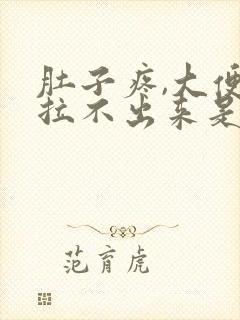 肚子疼,大便
拉不出来是
范育虎